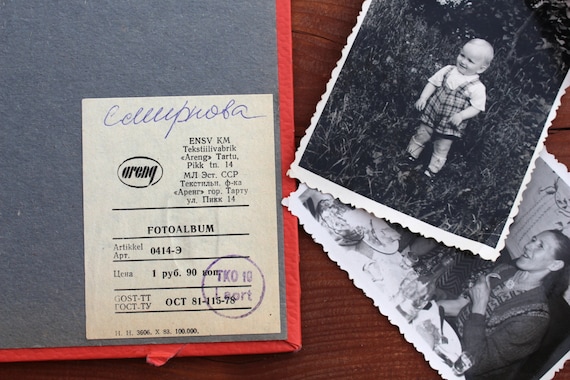 Смирнова
areng
ENSV KM
Tekstiilivabrik
«Areng» Tartu,
Pikk tn. 14
МЛ Эст. ССР
Текстильн. ф-ка
«Аренг» гор. Тарту
ул. Пикк 14
FOTOALBUM
Artikkel
Арт. 0414-Э
Цена 1 руб. 90 коп.
GOST-TT
ГОСТ.ТУ ОСТ 81-115-78
TKO 10
I sort
H. H. 3606. X 83. 100.000.